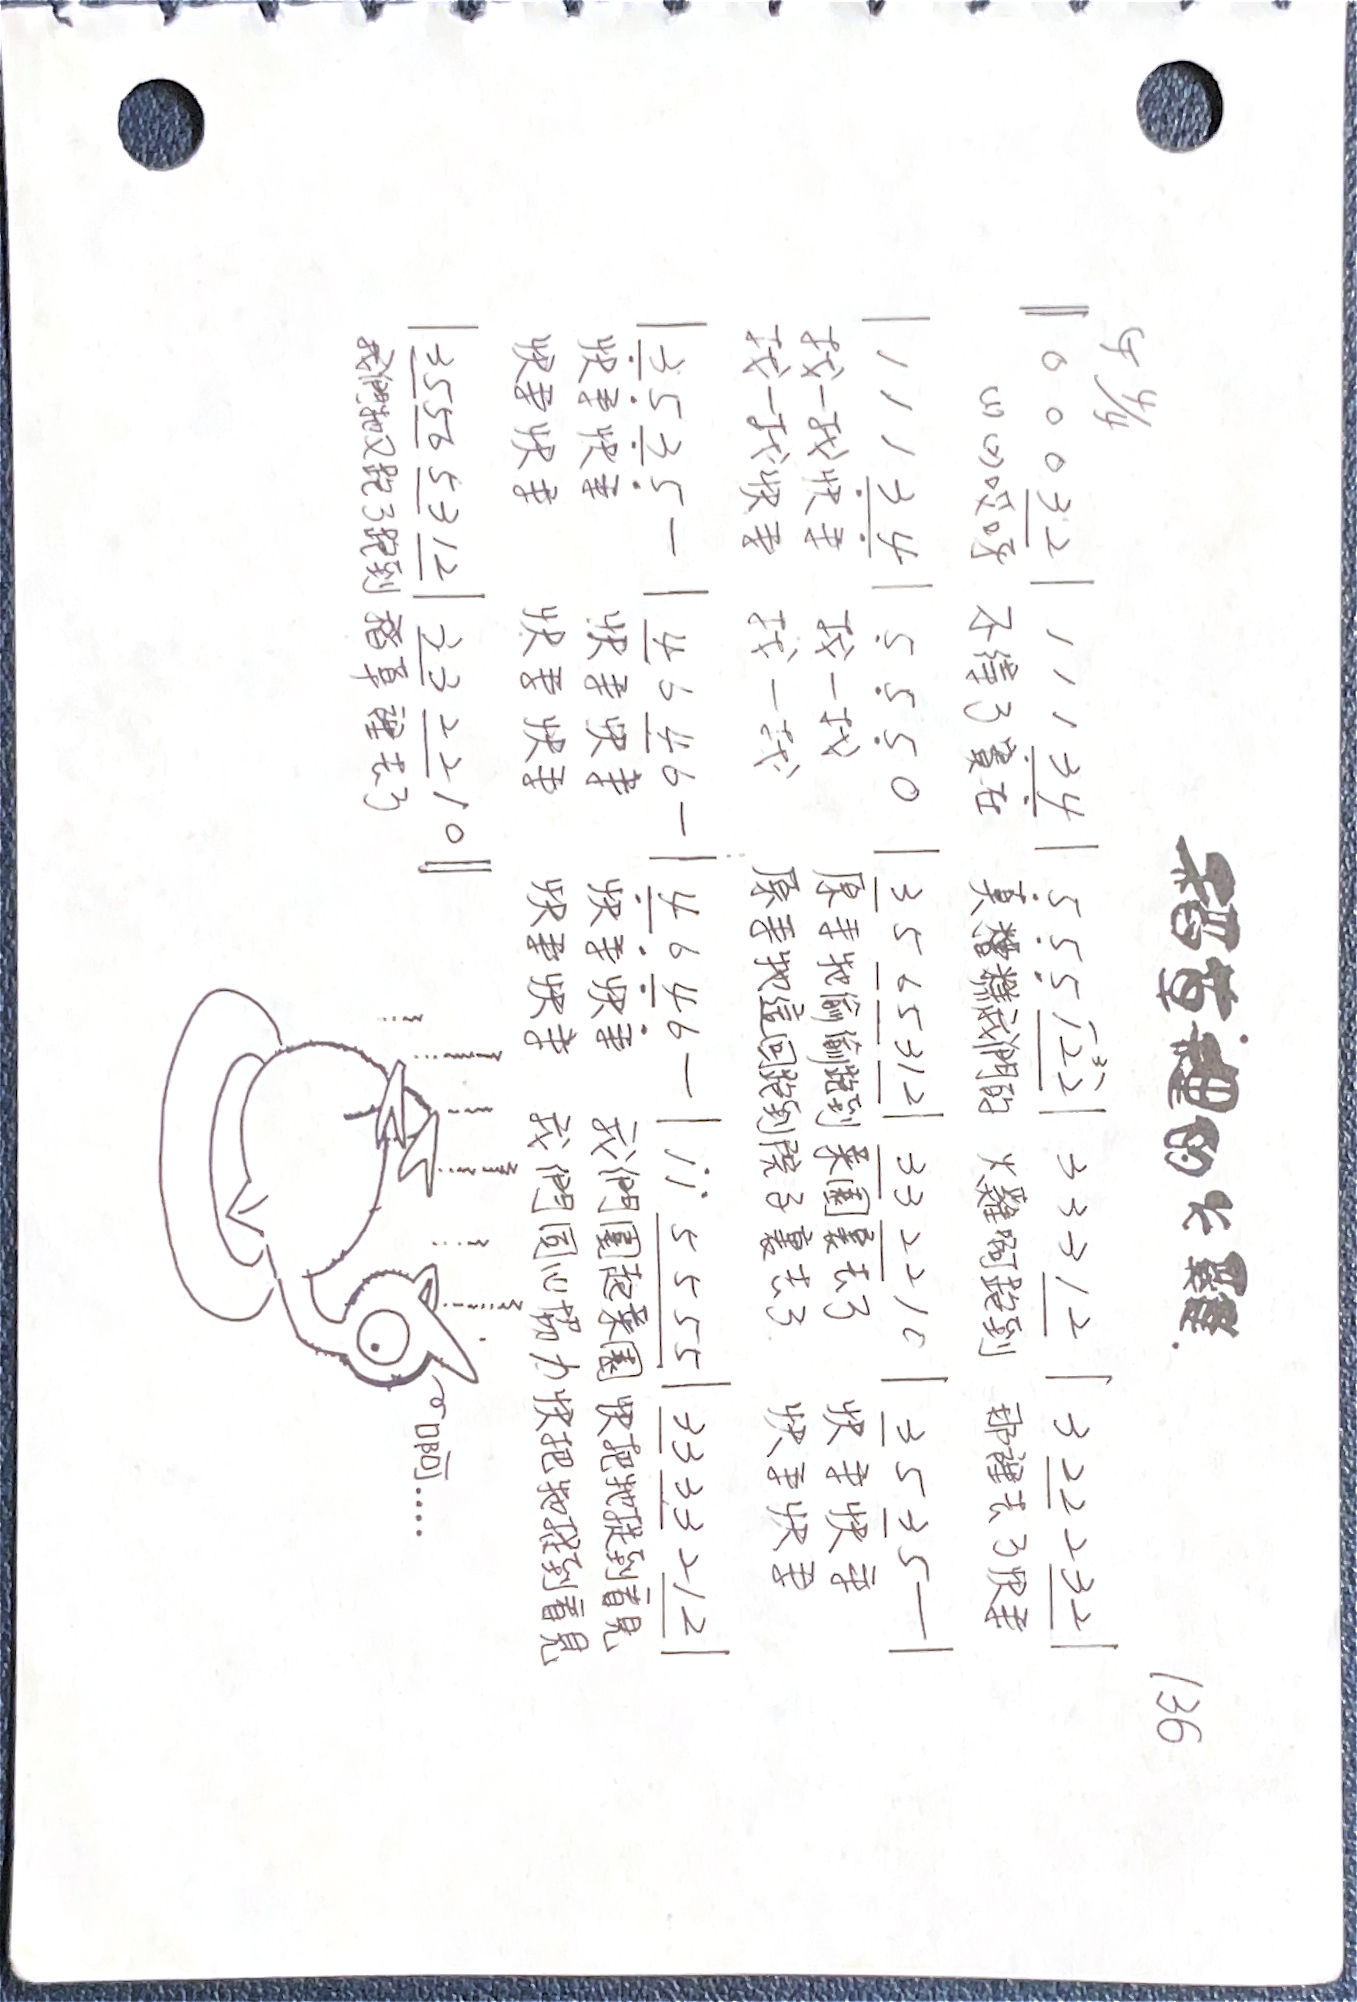 稻草裡的火雞.
136
G 4/4
‖ 0 0 0 3 2 | 1 1 1 3 4 | 5 5 5 1 2 2 | 3 3 3 1 2 | 3 2 2 2 3 2 |
(1) (2) 哎呀 不得了實在 真糟糕我們的 火雞啊跑到 那裡去了快來
| 1 1 1 3 4 | 5 5 5 0 | 3 5 6 5 3 1 2 | 3 3 2 2 1 0 | 3 5 3 5 — |
找一找快來 找一找 原來牠偷偷跑到 菜園裏去了 快來快來
找一找快來 找一找 原來牠這回跑到院子裏去了 快來快來
| 3 5 3 5 — | 4 6 4 6 — | 4 6 4 6 — | i i 5 5 5 5 | 3 3 3 3 2 1 2 |
快來快來 快來快來 快來快來 我們圍起菜園 快把牠捉到看見
快來快來 快來快來 快來快來 我們同心協力快把牠捉到看見
| 3 5 5 6 5 3 1 2 | 3 3 2 2 1 0 ‖
我們牠又跑了跑到 稻草裡去了
啊....